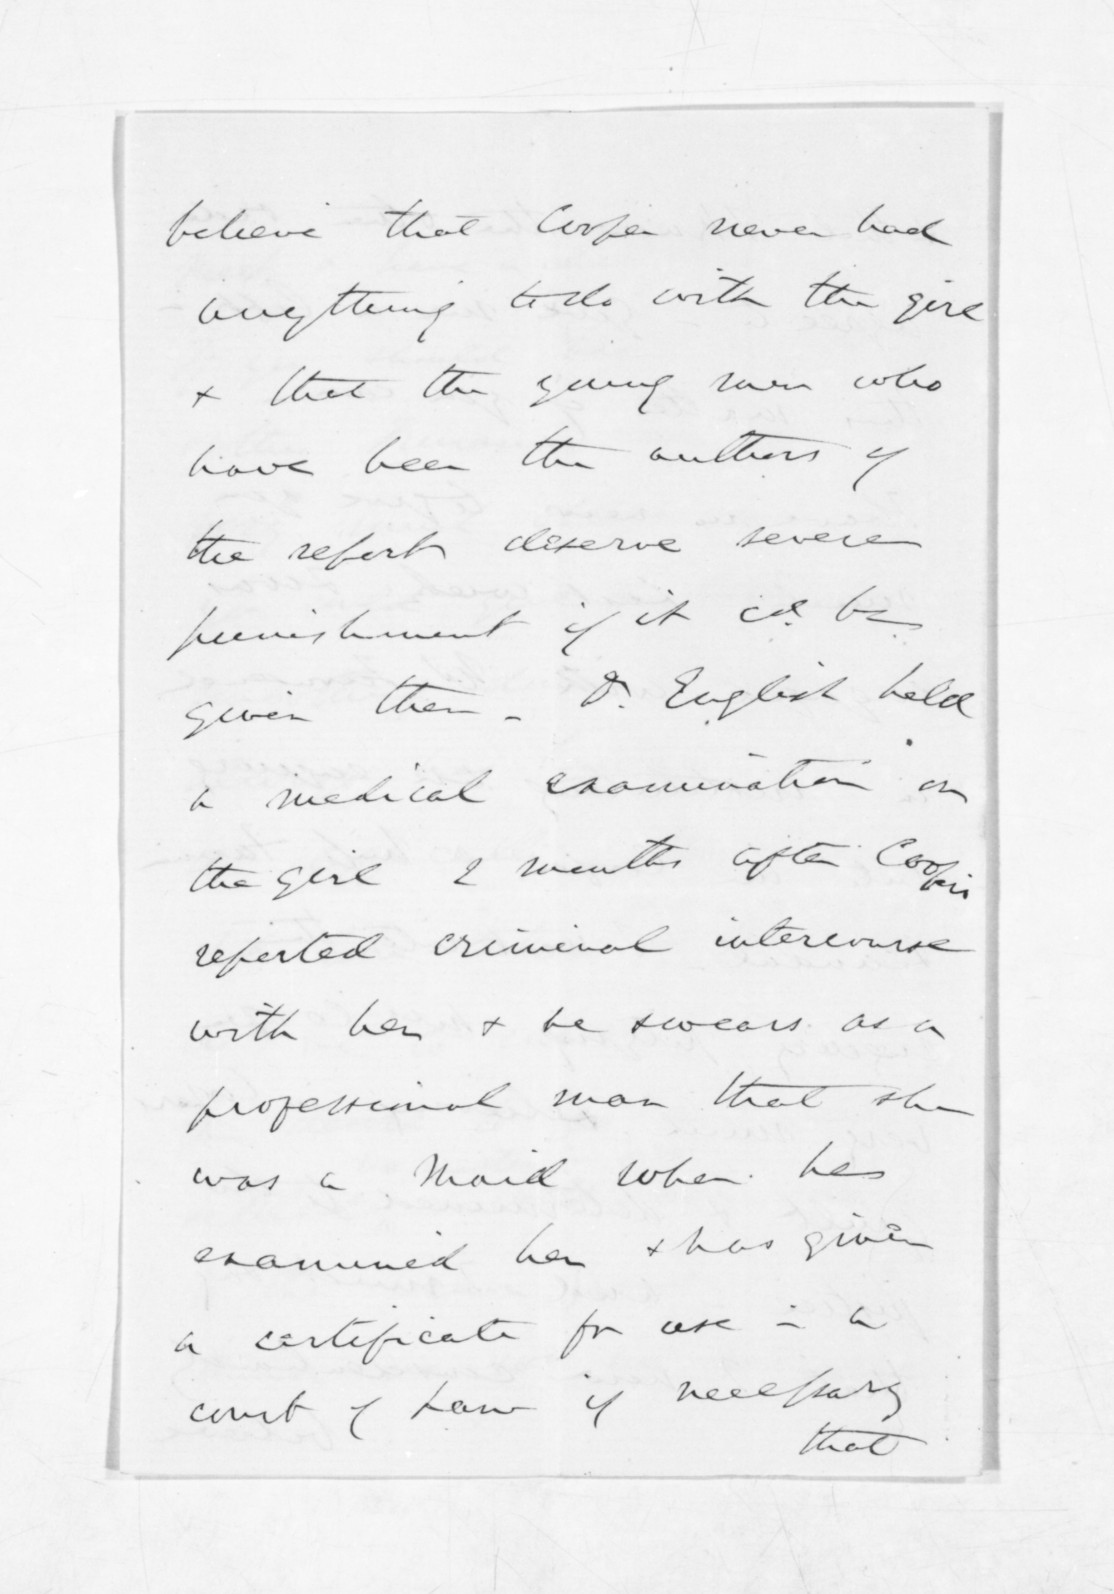 believe that Cooper never had
anything to do with the girl
& that the young men who
have been the authors of
the report deserve severe
punishment if it cd. be
given them - Dr. English held
a medical examination on
the girl 2 months after Coopers
reported criminal intercourse
with her & he swears as a
professional man that she
was a Maid when he
examined her & has given
a certificate for use in a
court of Law if necessary
that